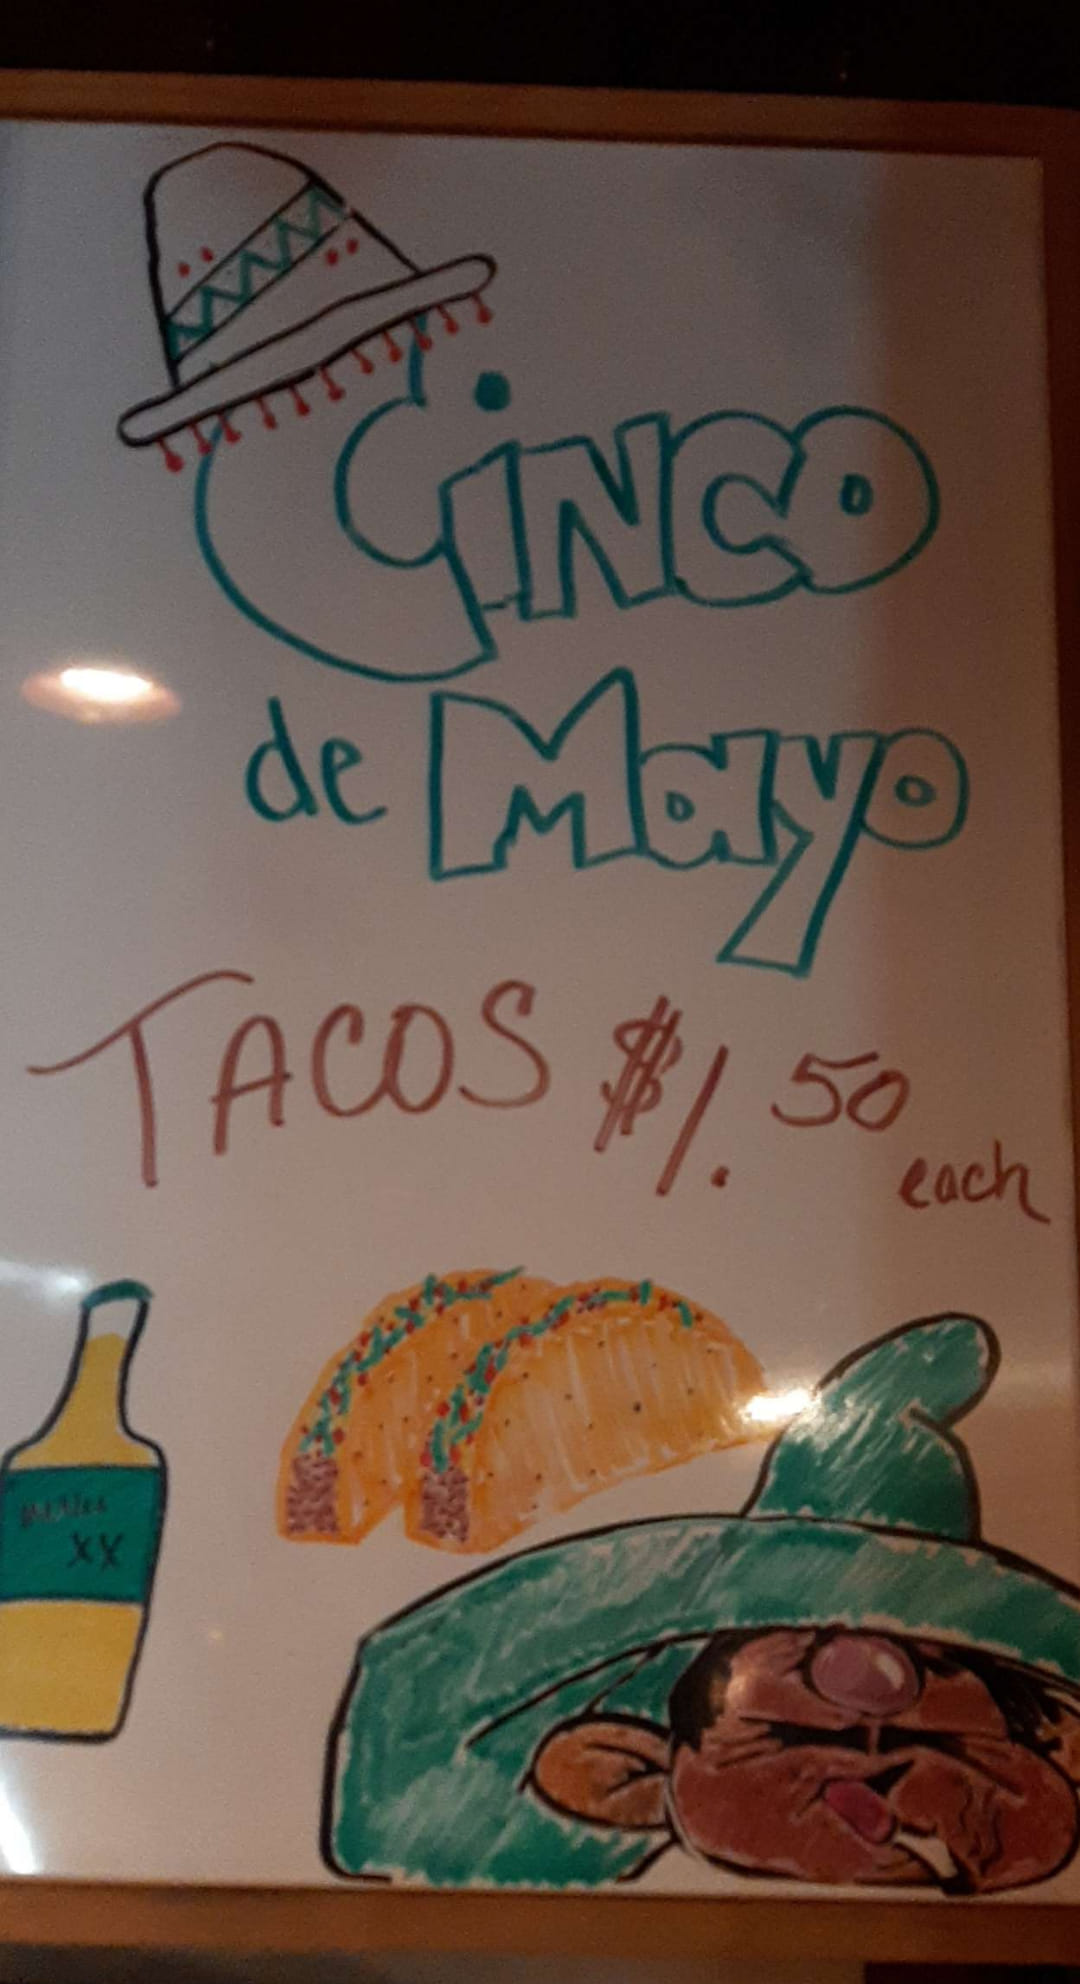 Cinco
de Mayo
TACOS $1.50
each
XX